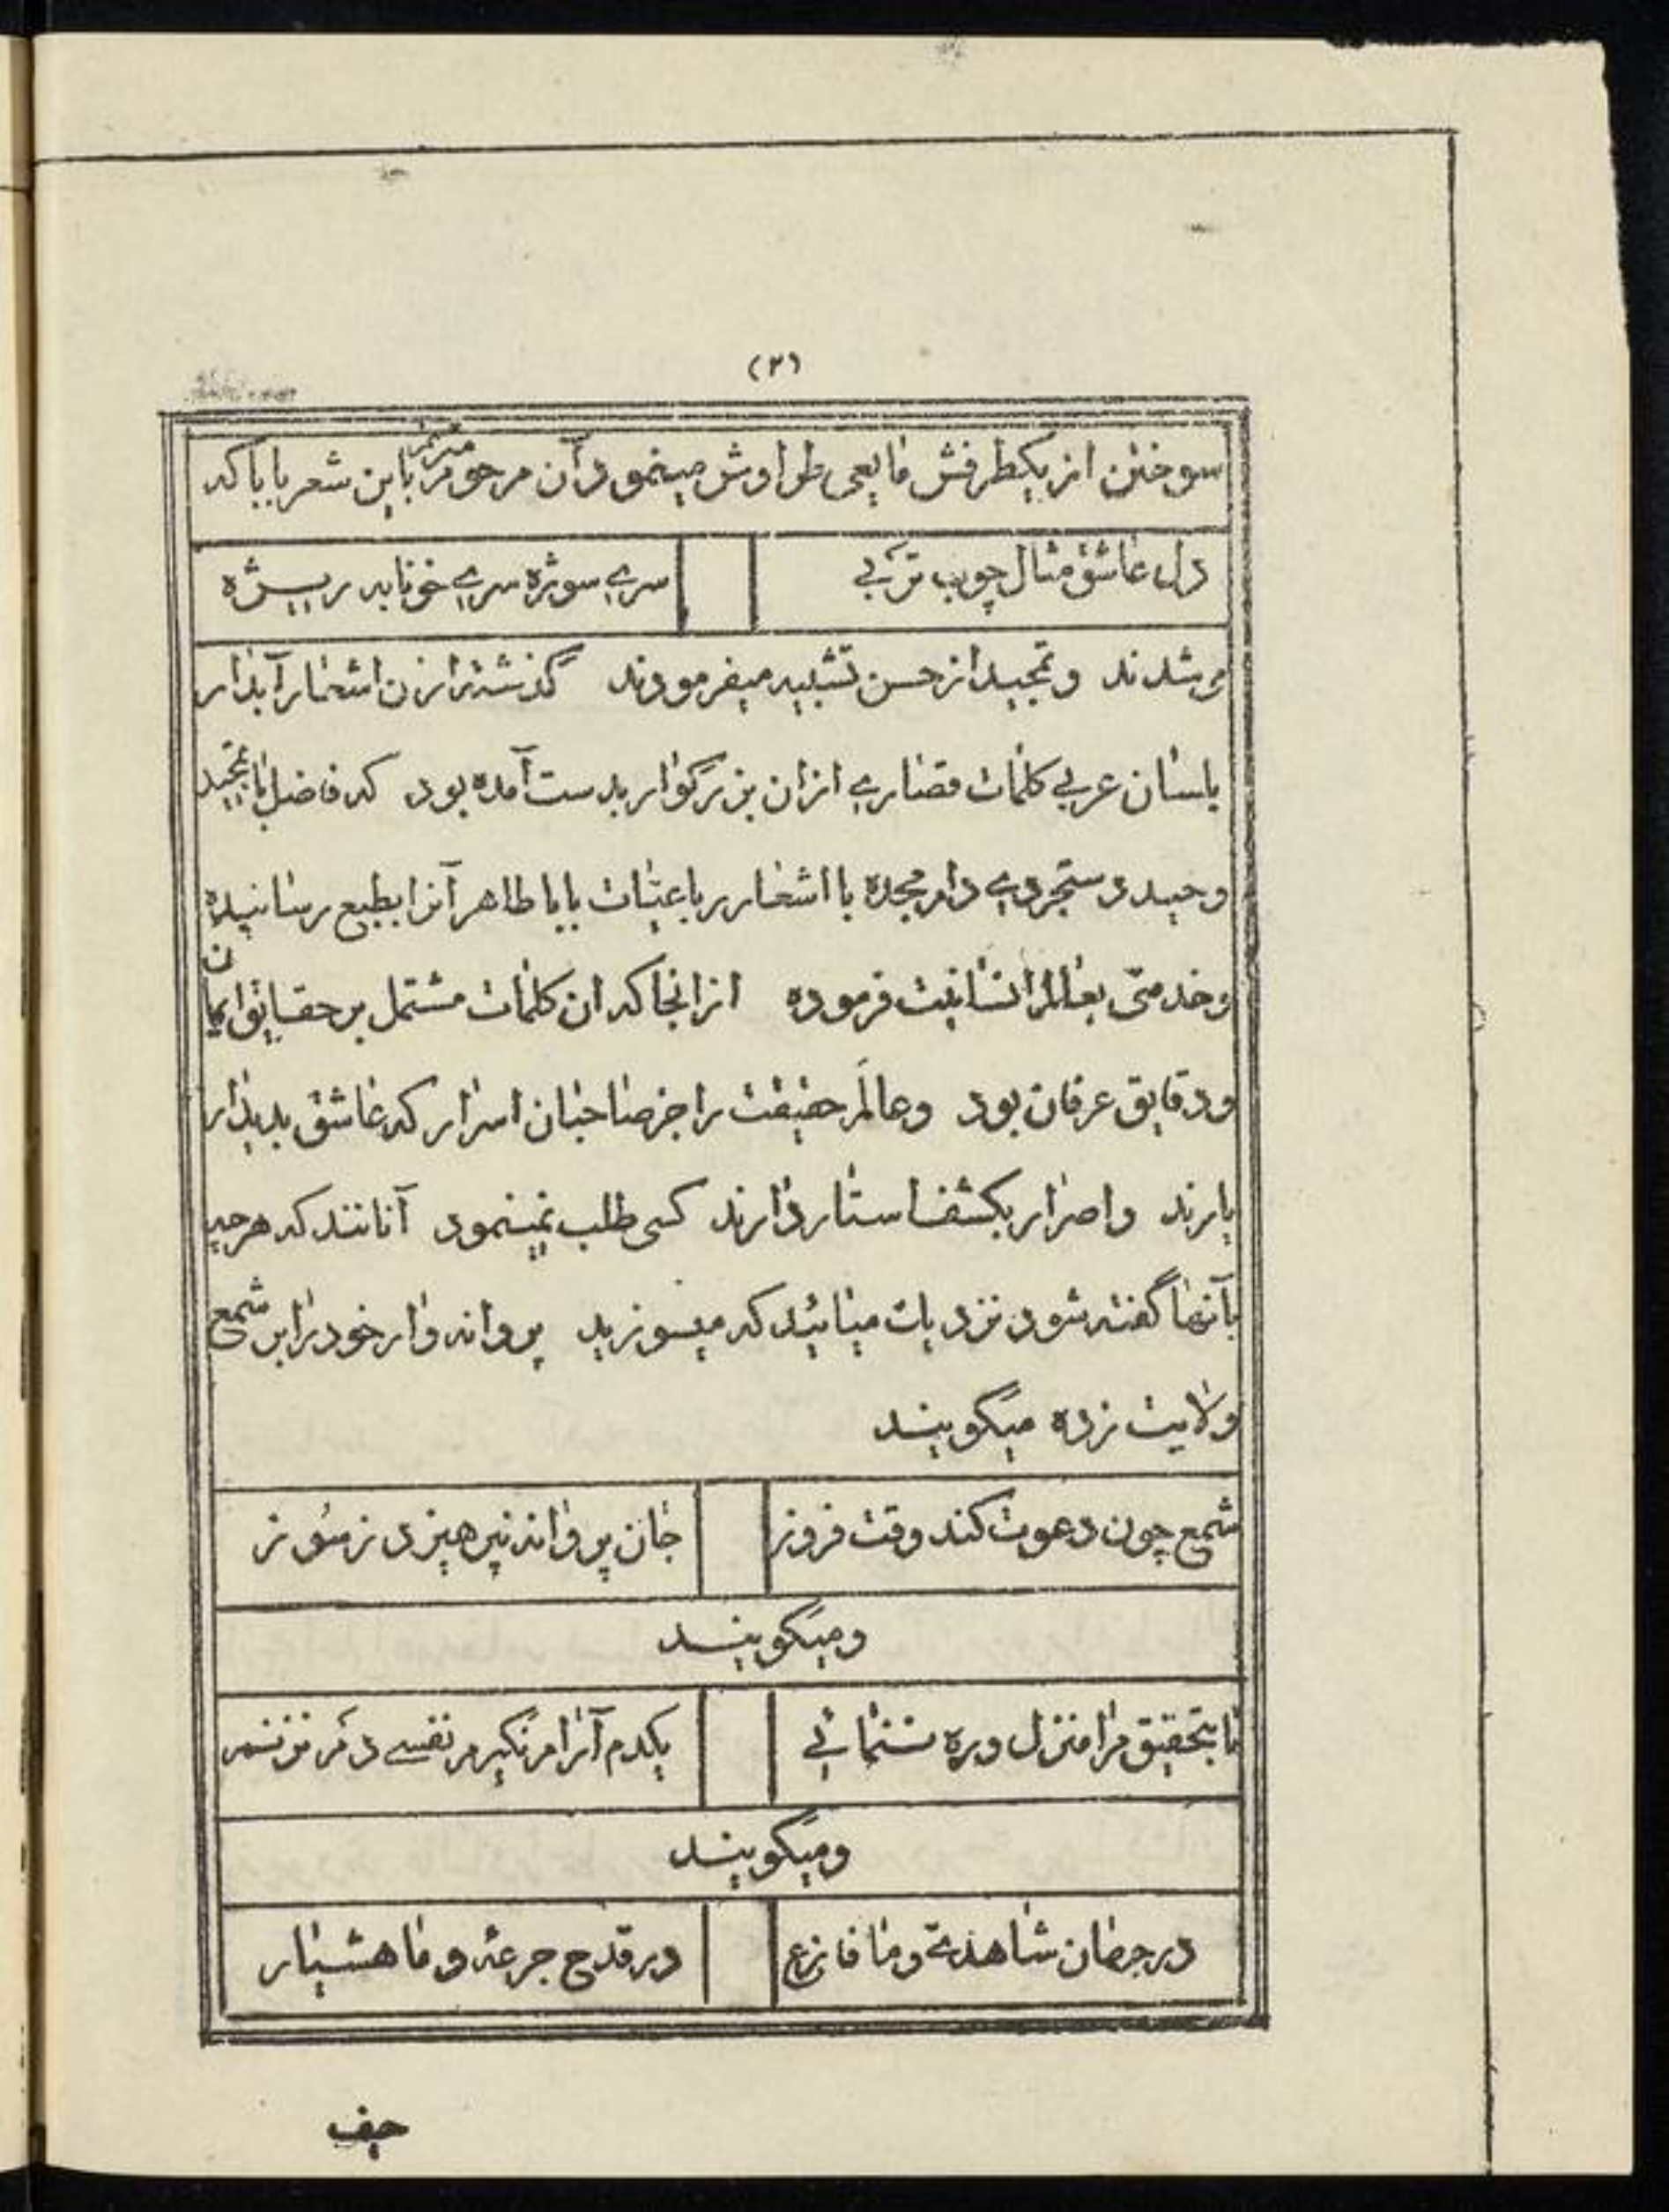 (۲)
سوختن از یکطرفش مایعی طراوش مینمود آن مرحوم مترنم باین شعر بابا که
دل عاشق مثال چوب تر بی
سری سوژه سری خونابه ریژه
میشدند و تمجید از حسن تشبیه میفرمودند گذشته از ن اشعار آبدار
بلسان عربی کلمات قصاری ازان بزرگوار بدست آمده بود که فاضل با تمجید
وحید دستجردی دام مجده با اشعار رباعیات بابا طاهر آنرا بطبع رسانیده
وخدمتی بعالم انسانیت فرموده ازانجا که ان کلمات مشتمل بر حقایق ایمان
ودقایق عرفان بود وعالم حقیقت را جز صاحبان اسرار که عاشق بدیدار
یارند واصرار بکشف استار دارند کسی طلب نمینمود آنانند که هرچه
بآنها گفته شود نزدیک میائید که میسوزید پروانه وار خود را بر شمع
ولایت زده میگویند
شمع چون دعوت کند وقت فروز
جان پروانه نپرهیزد ز سوز
ومیگویند
تا بتحقیق مرا منزل وره ننمائی
یکدم آرام نگیرم نفسی دم نزنم
ومیگویند
درجهان شاهدی وما فارغ
درقدح جرعه وما هشیار
حیف